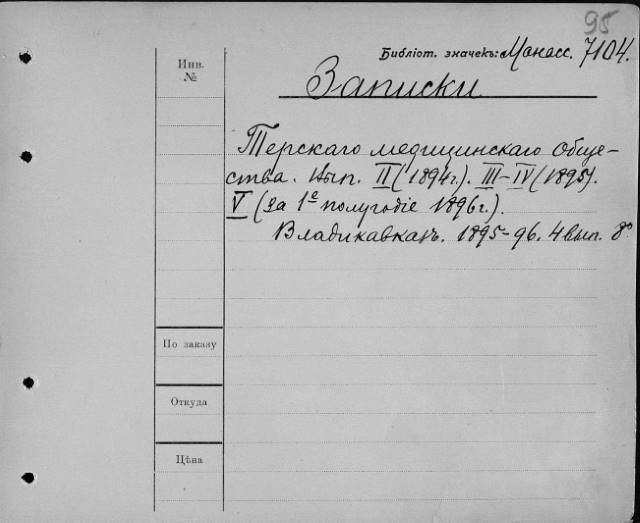 95
Библіот. значекъ: Манасс. 7104.
Инв.
№
Записки
Терскаго медицинскаго Обще-
ства. Вып. II (1894 г.). III–IV (1895).
V (за 1е полугодіе 1896 г.).
Владикавказъ. 1895–96. 4 вып. 8°
По заказу
Откуда
Цѣна